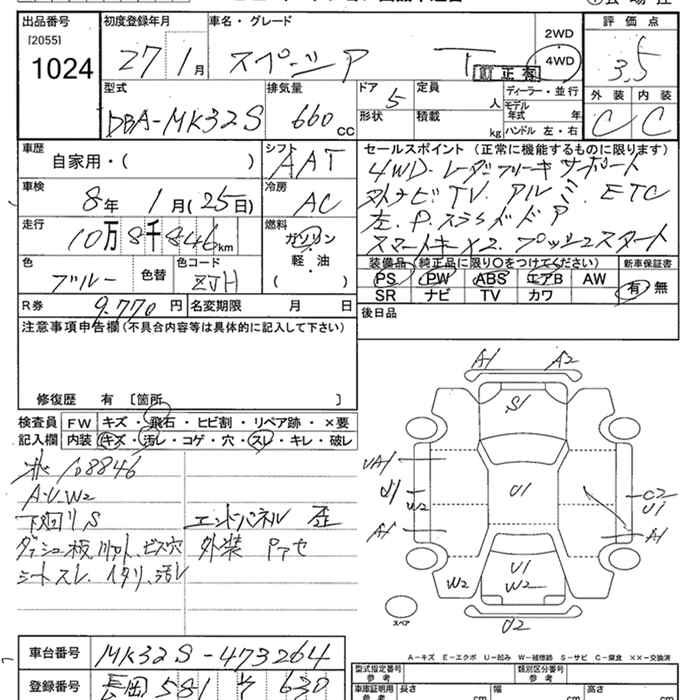 出品番号
[2055]
1024
初度登録年月
27年1月
車名・グレード
スペーシア T
訂正有
2WD
4WD
評価点
3.5
外装 内装
C C
型式
DBA-MK32S
排気量
660 CC
ドア
5
形状
定員
人
積載
kg
ディーラー・並行
モデル年式 年
ハンドル 左・右
車歴
自家用・( )
シフト
AAT
車検
8年 1月(25日)
冷房
AC
走行
10万8千846km
燃料
ガソリン
軽・油
( )
色
ブルー
色替
色コード
ZJH
R券
9,770円
名変期限 月 日
セールスポイント(正常に機能するものに限ります)
4WD・レーダーブレーキサポート
ナビTV. アルミ. ETC
左.P.スライドドア
スマートキーX2. プッシュスタート
装備品 (純正品に限り〇をつけてください)
新車保証書
PS PW ABS エアB AW
SR ナビ TV カワ
有 無
後日品
注意事項申告欄(不具合内容等は具体的に記入して下さい)
修復歴 有 〔箇所 〕
検査員記入欄
FW キズ・飛石・ヒビ割・リペア跡・×要
内装 キズ・汚レ・コゲ・穴・スレ・キレ・破レ
108846
A.U.W2
下回リS
ダッシュ板 リアット、ビス穴
シートスレ. イタリ、汚レ
エンドパネル 歪
外装 Pアセ
A1 A2
S1
UA1
U1
W2
A1
U1
C2
U1
A1
W2
U1
W2
U2
スペア
A-キズ E-エクボ U-凹み W-補修跡 S-サビ C-腐食 ××-交換済
車台番号
MK32S-473264
登録番号
長岡 581 サ 630
型式指定番号
参考
類別区分番号
参考
車庫証明用
参考
長さ cm
幅 cm
高さ cm